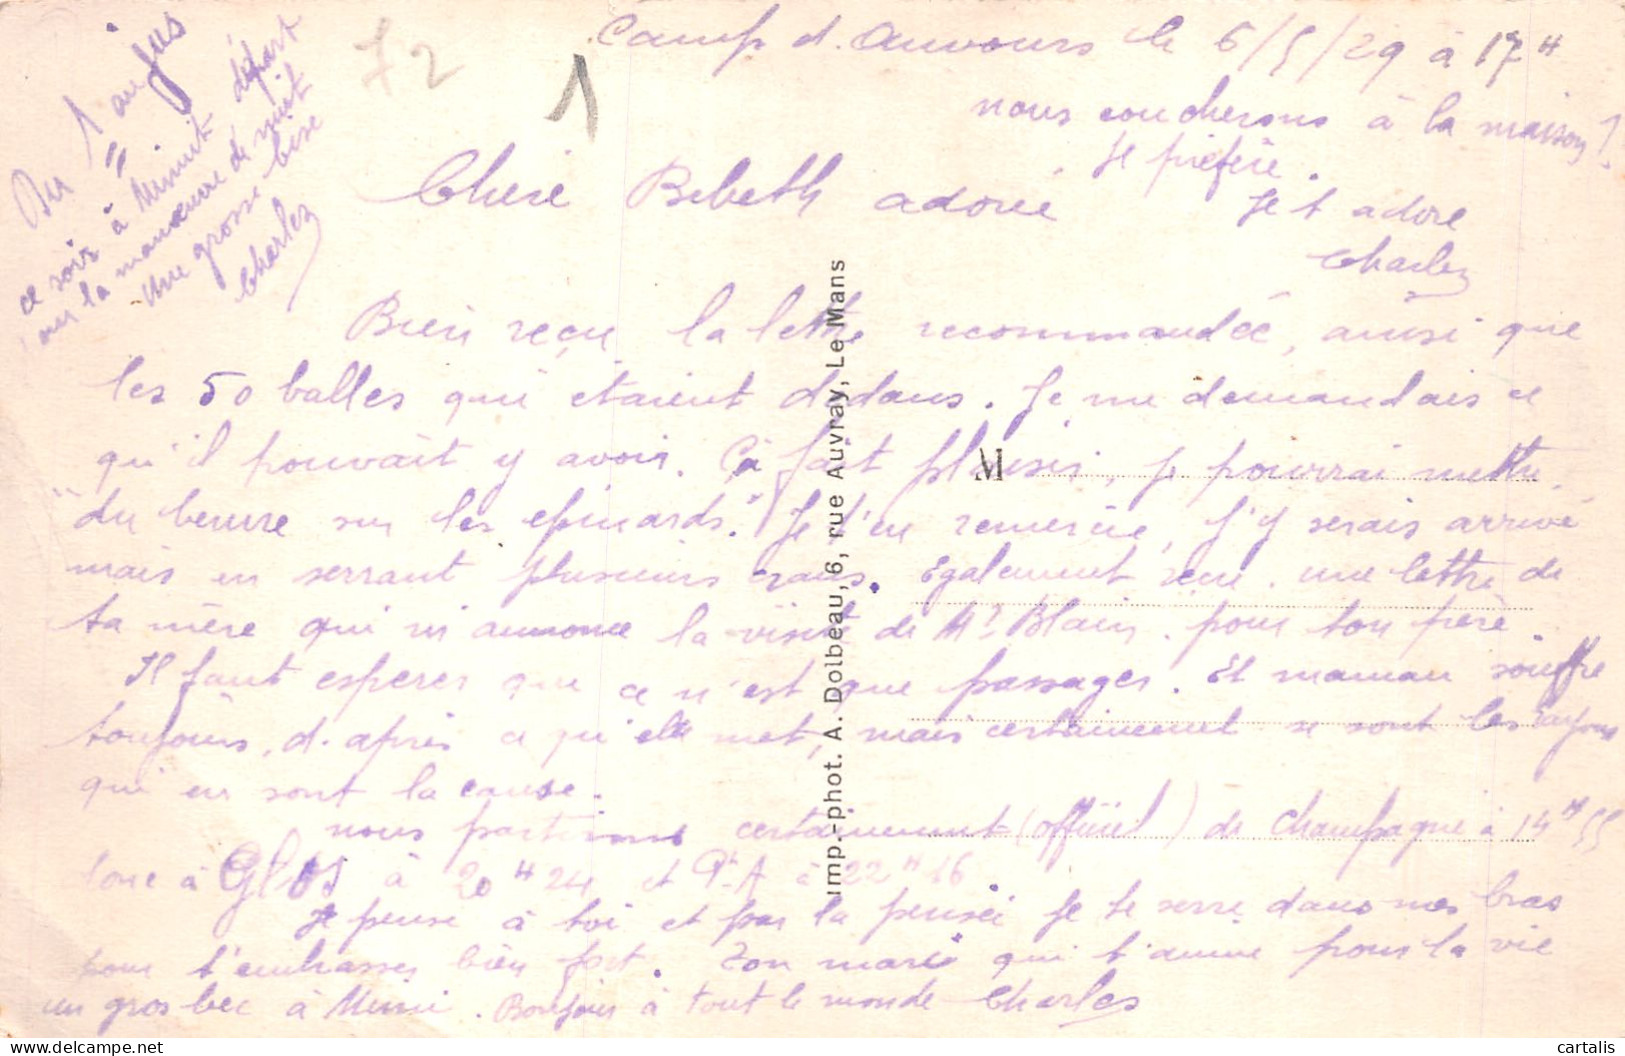 Camp d. Auvours le 6/5/29 à 17 H
nous coucherons à la maison !
Je préfère.
Je t adore
Charlez
Du 1 au jus
ce soir à Minuit départ
la manœuvre de nuit
Une grosse bise
Charlez
72
1
Cherie Bebeth adorée
Bien reçu la lettre recommandée, ainsi que
les 50 balles qui etaient dedans. Je me demandais ce
qu'il pouvait y avoir. Ca fait plaisir, je pourrai mettre
"du beurre sur les epinards." Je t'en remercie, j'y serais arrivé
mais en serrant plusieurs crans. Egalement reçu une lettre de
ta mère qui m annonce la visite de Mr Blain pour ton père.
Il faut esperer que ce n'est que passager. Et maman souffre
toujours, d. après ce qu'elle met, mais certainement se sont les rayons
qui en sont la cause.
nous partirons certainement (officiel) de Champagné à 14 H 55
donc à Glos à 20 H 24 et Pt-A à 22 H 16
Je pense à toi et par la pensée je te serre dans mes bras
pour t'embrasser bien fort. Ton mari qui t'aime pour la vie
un gros bec à Mimi. Bonjour à tout le monde Charles
M
Imp.-phot. A. Dolbeau, 6, rue Auvray, Le Mans
cartalis